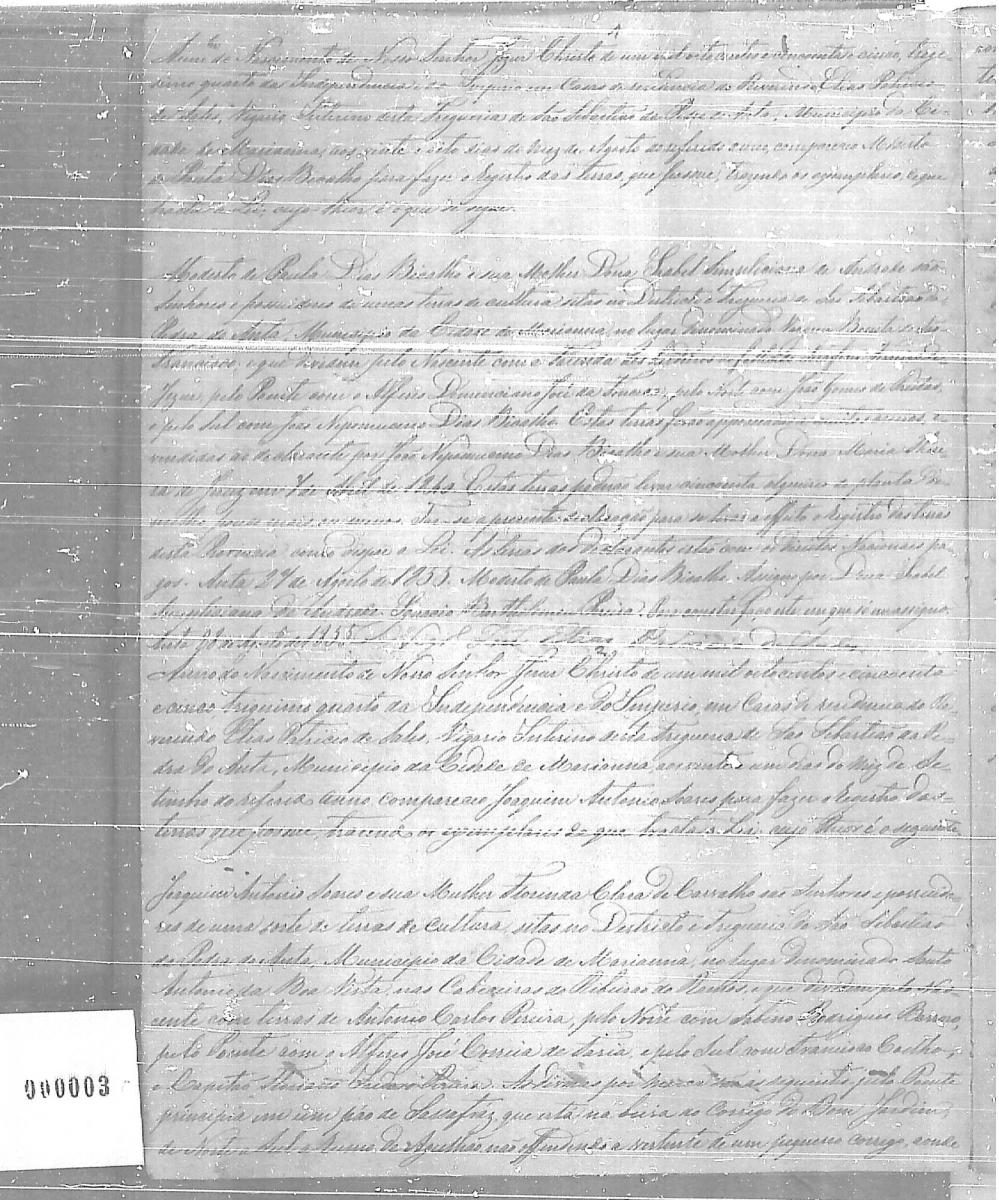 1
Anno do Nascimento de Nosso Senhor Jezus Christo de um mil oito centos e cincoenta e cinco, trige-
simo quarto da Independencia e do Imperio em Casas de residencia do Reverendo Elias Patricio
de Sales, Vigario Interino desta Freguezia de São Sebastião da Pedra do Anta, Municipio da Ci-
dade de Marianna, aos vinte e sete dias do mez de Agosto do referido anno, compareceo Modesto
de Paula Dias Bicalho para fazer o Registro das terras, que possue, trazendo os exemplares, de que
tracta a Lei, cujo theor é o que se segue.
Modesto de Paula Dias Bicalho e sua Molher Dona Izabel Simpliciana de Andrade são
Senhores e possuidores de umas terras de cultura sitas no Districto e Freguezia de São Sebastião da
Pedra do Anta Municipio da Cidade de Marianna, no lugar denominado Vargem Bonita de São
Francisco, e que dividem pelo Nascente com a Fazenda dos
Jezus, pelo Poente com o Alferes Domiciano José da Fonseca, pelo Norte com João Gomes de Freitas,
e pelo Sul com João Nepomuceno Dias Bicalho. Estas terras forão
vendidas ao declarante por João Nepomuceno Dias Bicalho e sua Molher Dona Maria There-
za de Jezuz em 7 de Abril de Estas terras poderão levar cincoenta alqueires de planta de
milho, pouco mais ou menos. Faz-se a presente declaração para se levar a effeito o Registro das terras
desta Provincia, como dispoe a Lei. As terras dos declarantes estão com os Direitos Nacionais pa-
gos. Anta 27 de Agosto de 1855. Modesto de Paula Dias Bicalho. Assigno por Dona Izabel
Simpliciana de Andrade Bartholomeu Para constar faço este em que só me assigno.
Anta de Agosto de 1855.
2
Anno do Nascimento de Nosso Senhor Jezus Christo de um mil oito centos e cincoenta
e cinco, trigesimo quarto da Independencia e do Imperio, em Casas de residencia do Re-
verendo Elias Patricio de Sales, Vigario Interino desta Freguezia de São Sebastião da Pe-
dra do Anta, Municipio da Cidade de Marianna, aos vinte e um dias do mez de Se-
tembro do referido anno compareceo Joaquim Antonio Soares para fazer o Registro das
terras que possue, trazendo os exemplares de que tracta a Lei, cujo theor é o seguinte
Joaquim Antonio Soares e sua Mulher Florinda Clara de Carvalho são Senhores e possuido-
res de uma sorte de terras de cultura, sitas no Districto e Freguezia de São Sebastião
da Pedra do Anta, Municipio da Cidade de Marianna, no lugar denominado Santo
Antonio da Boa Vista, nas Cabeceiras do Ribeirão de e que dividem pelo Nas-
cente com terras de Antonio Carlos Pereira, pelo Norte com Sabino Rodrigues Barroso,
pelo Poente com o Alferes José Correia de Faria, e pelo Sul com Francisco Coelho,
e Capitão As divisas por marca são as seguintes, pelo Poente
principia em um páo de Sassafraz, que está na beira do Corrego do Bom Jardim,
de Norte a Sul a Rumo de Agulhão não offendendo a vertente de um pequeno corrego, aonde
000003